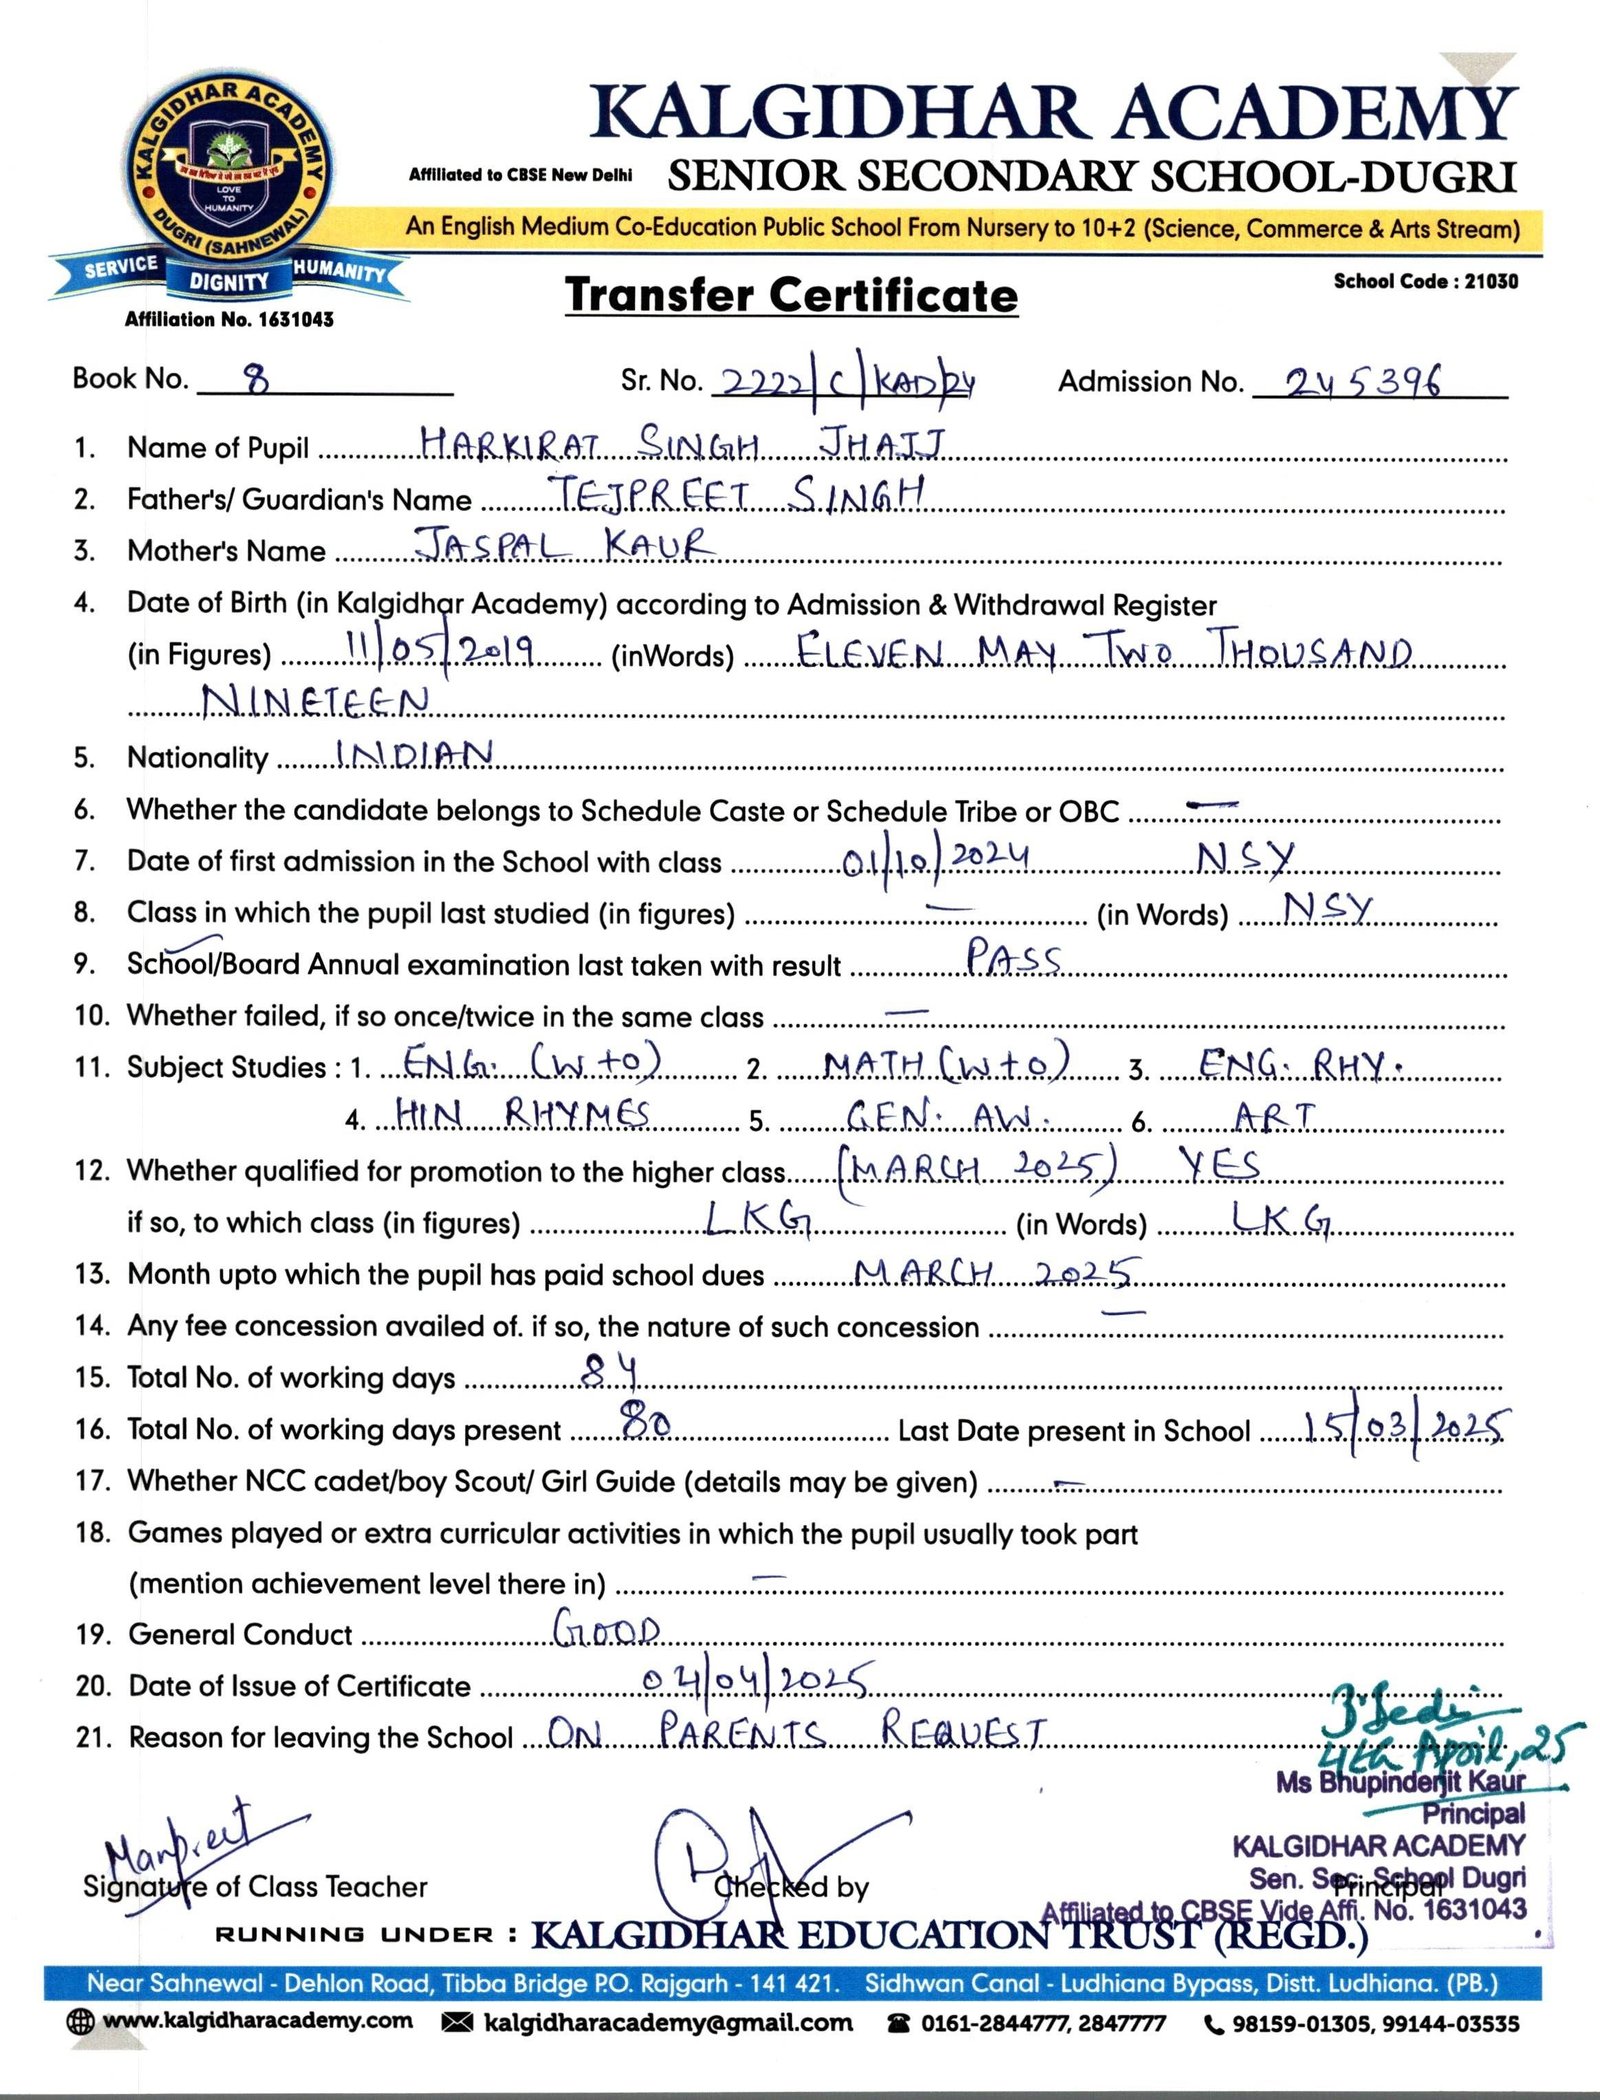 KALGIDHAR ACADEMY
DUGRI (SAHNEWAL)
LOVE
TO
HUMANITY
SERVICE DIGNITY HUMANITY
Affiliation No. 1631043
KALGIDHAR ACADEMY
Affiliated to CBSE New Delhi SENIOR SECONDARY SCHOOL-DUGRI
An English Medium Co-Education Public School From Nursery to 10+2 (Science, Commerce & Arts Stream)
Transfer Certificate
School Code : 21030
Book No. 8 Sr. No. 2222/C/KAD/24 Admission No. 245396
1. Name of Pupil HARKIRAT SINGH JHAJJ
2. Father's/ Guardian's Name TEJPREET SINGH
3. Mother's Name JASPAL KAUR
4. Date of Birth (in Kalgidhar Academy) according to Admission & Withdrawal Register
(in Figures) 11/05/2019 (inWords) ELEVEN MAY TWO THOUSAND
NINETEEN
5. Nationality INDIAN
6. Whether the candidate belongs to Schedule Caste or Schedule Tribe or OBC —
7. Date of first admission in the School with class 01/10/2024 NSY
8. Class in which the pupil last studied (in figures) — (in Words) NSY
9. School/Board Annual examination last taken with result PASS
10. Whether failed, if so once/twice in the same class —
11. Subject Studies : 1. ENG. (W+O) 2. MATH (W+O) 3. ENG. RHY.
4. HIN RHYMES 5. GEN. AW. 6. ART
12. Whether qualified for promotion to the higher class (MARCH 2025) YES
if so, to which class (in figures) LKG (in Words) LKG
13. Month upto which the pupil has paid school dues MARCH 2025
14. Any fee concession availed of. if so, the nature of such concession —
15. Total No. of working days 84
16. Total No. of working days present 80 Last Date present in School 15/03/2025
17. Whether NCC cadet/boy Scout/ Girl Guide (details may be given) —
18. Games played or extra curricular activities in which the pupil usually took part
(mention achievement level there in) —
19. General Conduct GOOD
20. Date of Issue of Certificate 04/04/2025
21. Reason for leaving the School ON PARENTS REQUEST
4th April, 25
Ms Bhupinderjit Kaur
Principal
KALGIDHAR ACADEMY
Sen. Sec. School Dugri
Affiliated to CBSE Vide Affi. No. 1631043
Manpreet
Signature of Class Teacher Checked by Principal
RUNNING UNDER : KALGIDHAR EDUCATION TRUST (REGD.)
Near Sahnewal - Dehlon Road, Tibba Bridge P.O. Rajgarh - 141 421. Sidhwan Canal - Ludhiana Bypass, Distt. Ludhiana. (PB.)
www.kalgidharacademy.com kalgidharacademy@gmail.com 0161-2844777, 2847777 98159-01305, 99144-03535